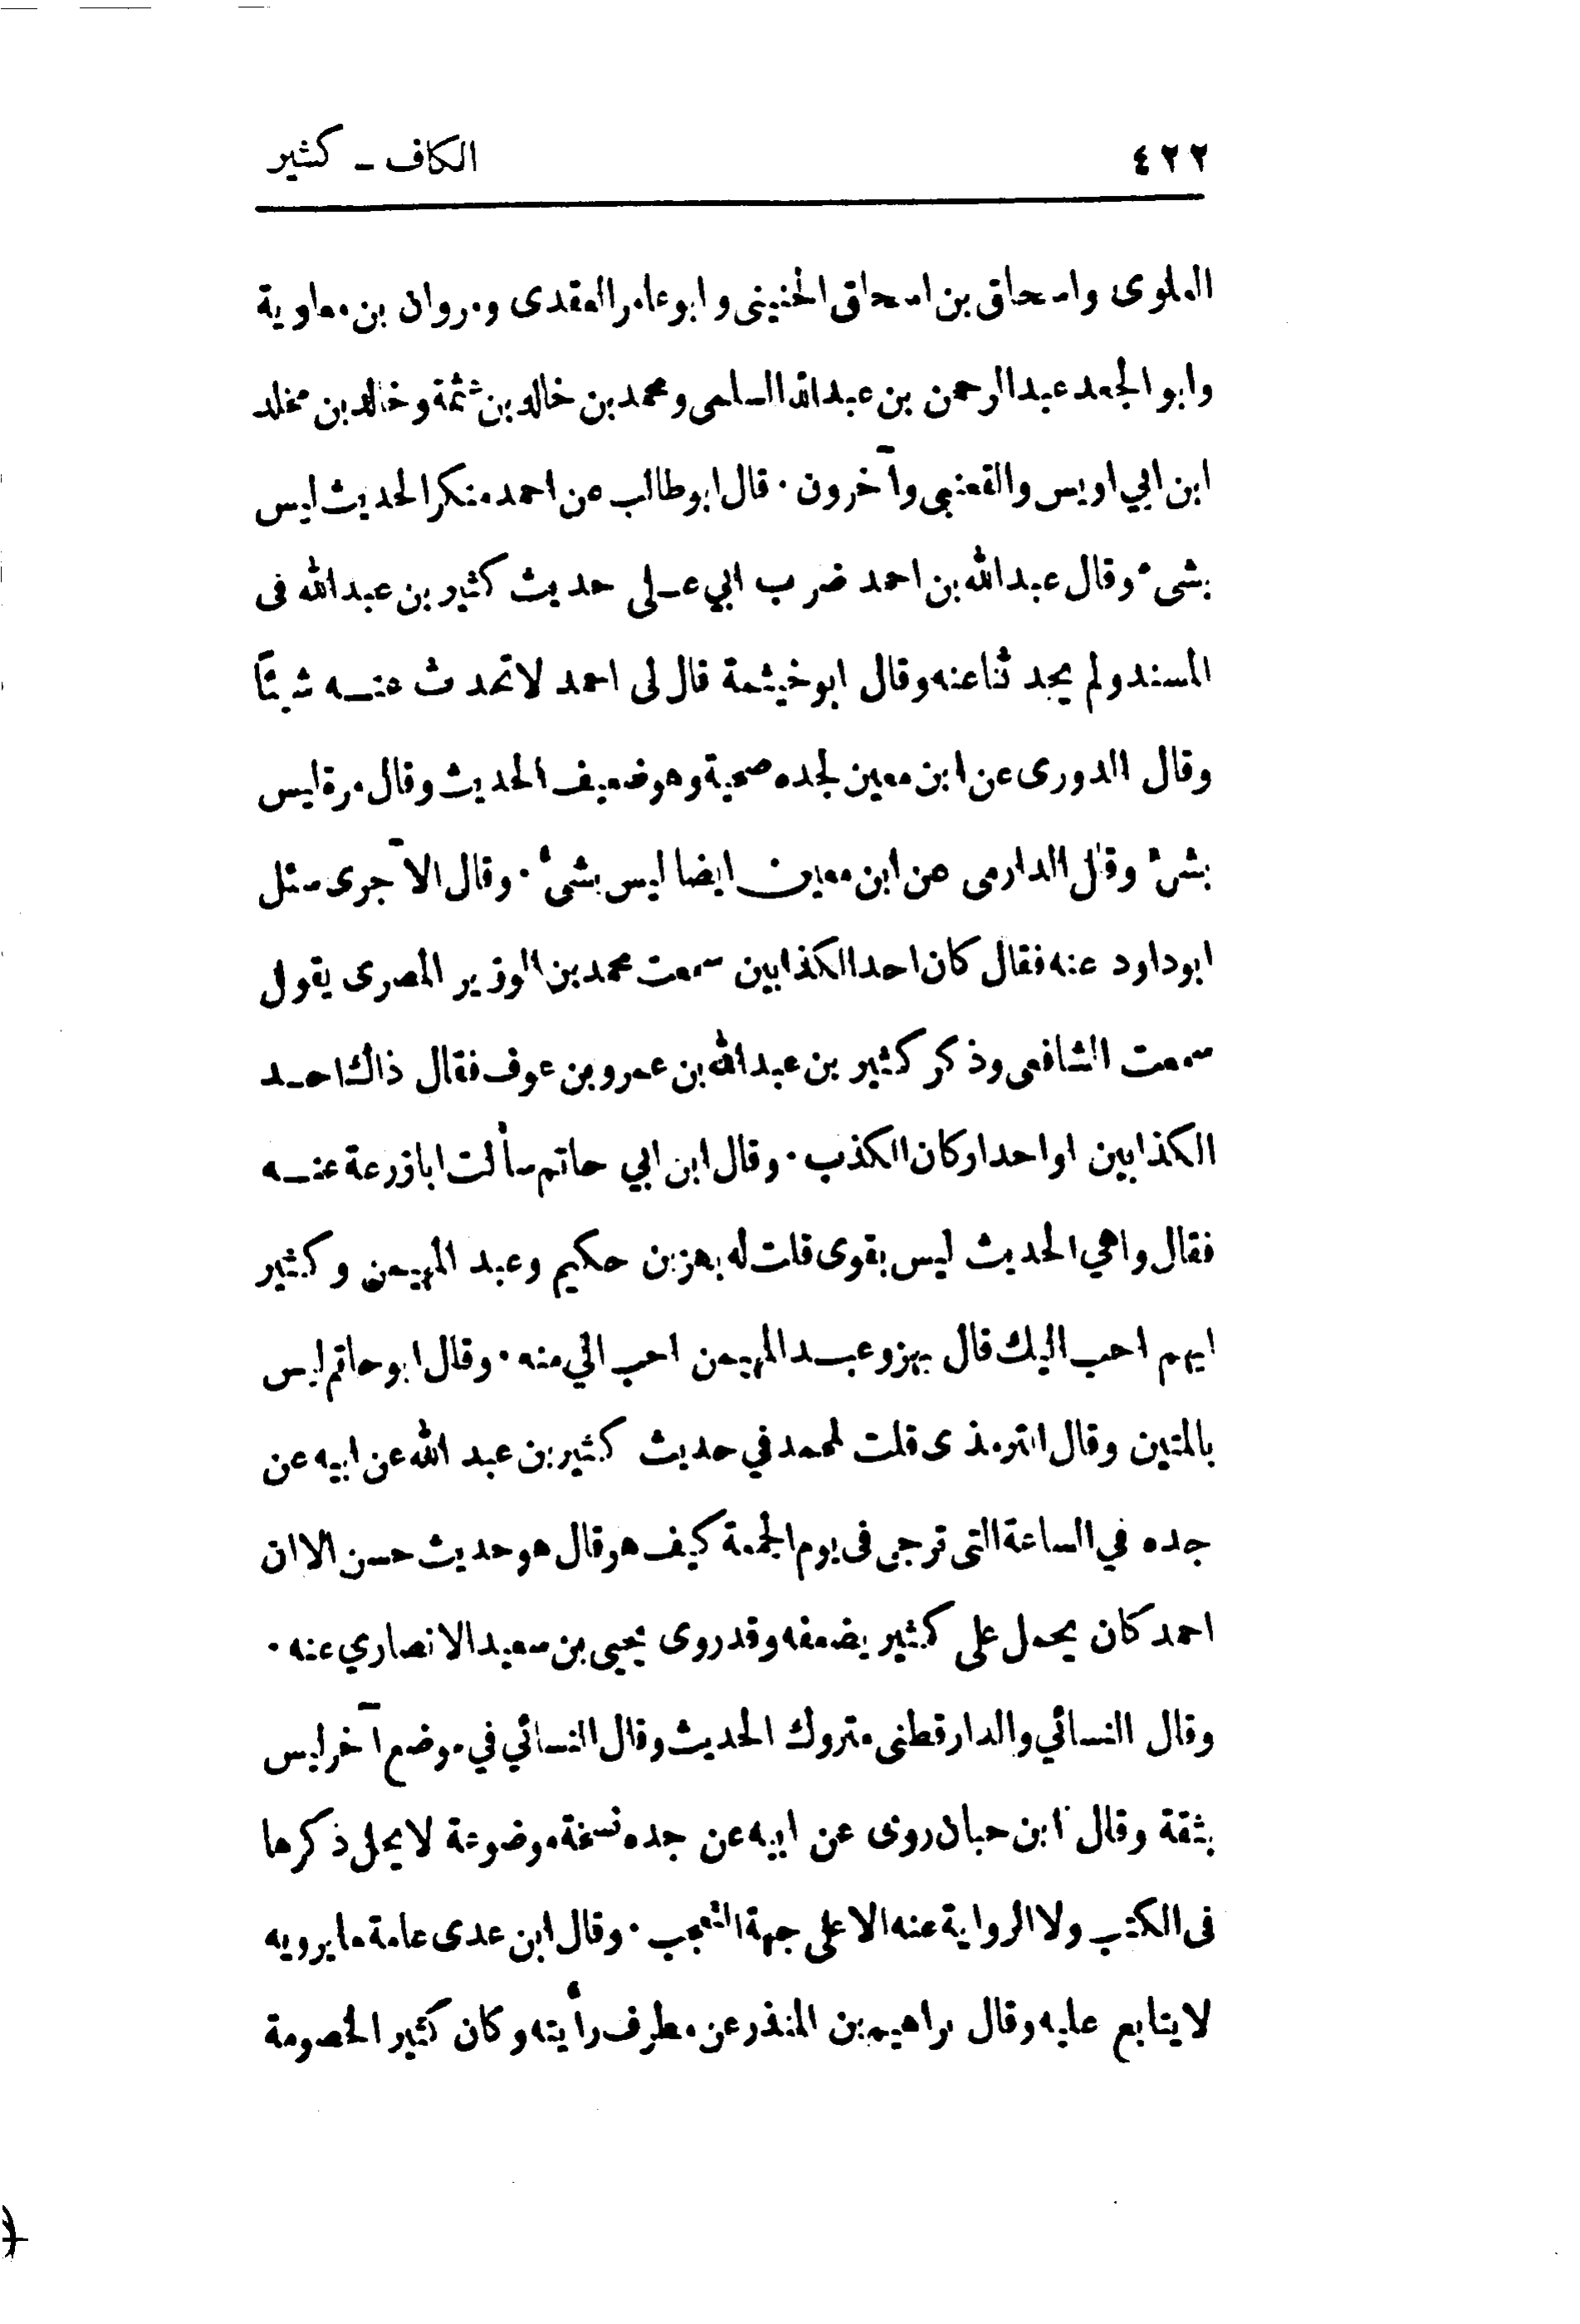 ٤٢٢ الكاف ـ كثير
العلوى واسحاق بن اسحاق الحنينى وابو عامر العقدى ومروان بن معاوية
وابو الجعد عبد الرحمن بن عبد الله السلمى ومحمد بن خالد بن عثمة وخالد بن مخلد
ابن ابي اويس والقعنبى وآخرون . قال ابو طالب عن احمد منكر الحديث ليس
بشىء وقال عبد الله بن احمد ضرب ابي عـلى حديث كثير بن عبد الله فى
المسند ولم يحد ثنا عنه وقال ابو خيثمة قال لى احمد لا تحد ث عنـه شيئاً
وقال الدورى عن ابن معين لجده صحبة وهو ضعيف الحديث وقال مرة ليس
بشئ وقال الدارمى عن ابن معين ايضا ليس بشئ . وقال الآجرى سئل
ابو داود عنه فقال كان احد الكذابين سمعت محمد بن الوزير المصرى يقول
سمعت الشافعى وذكر كثير بن عبد الله بن عمرو بن عوف فقال ذاك احـد
الكذابين او احد اركان الكذب . وقال ابن ابي حاتم سألت ابا زرعة عنـه
فقال واهي الحديث ليس بقوى قلت له بهز بن حكيم وعبد المهيمن وكثير
ايهم احب اليك قال بهز وعبـد المهيمن احب الي منه . وقال ابو حاتم ليس
بالمتين وقال الترمذى قلت لمحمد في حديث كثير بن عبد الله عن ابيه عن
جده في الساعة التى ترجى فى يوم الجمعة كيف هو قال هو حديث حسن الا ان
احمد كان يحمل على كثير يضعفه وقد روى يحيى بن سعيد الانصاري عنه .
وقال النسائي والدارقطنى متروك الحديث وقال النسائي في موضع آخر ليس
بثقة وقال ابن حبان روى عن ابيه عن جده نسخة موضوعة لا يحل ذكرها
فى الكتب ولا الرواية عنه الا على جهة التعجب . وقال ابن عدى عامة ما يرويه
لا يتابع عليه وقال براهيم بن المنذر عن مطرف رأيته وكان كثير الخصومة